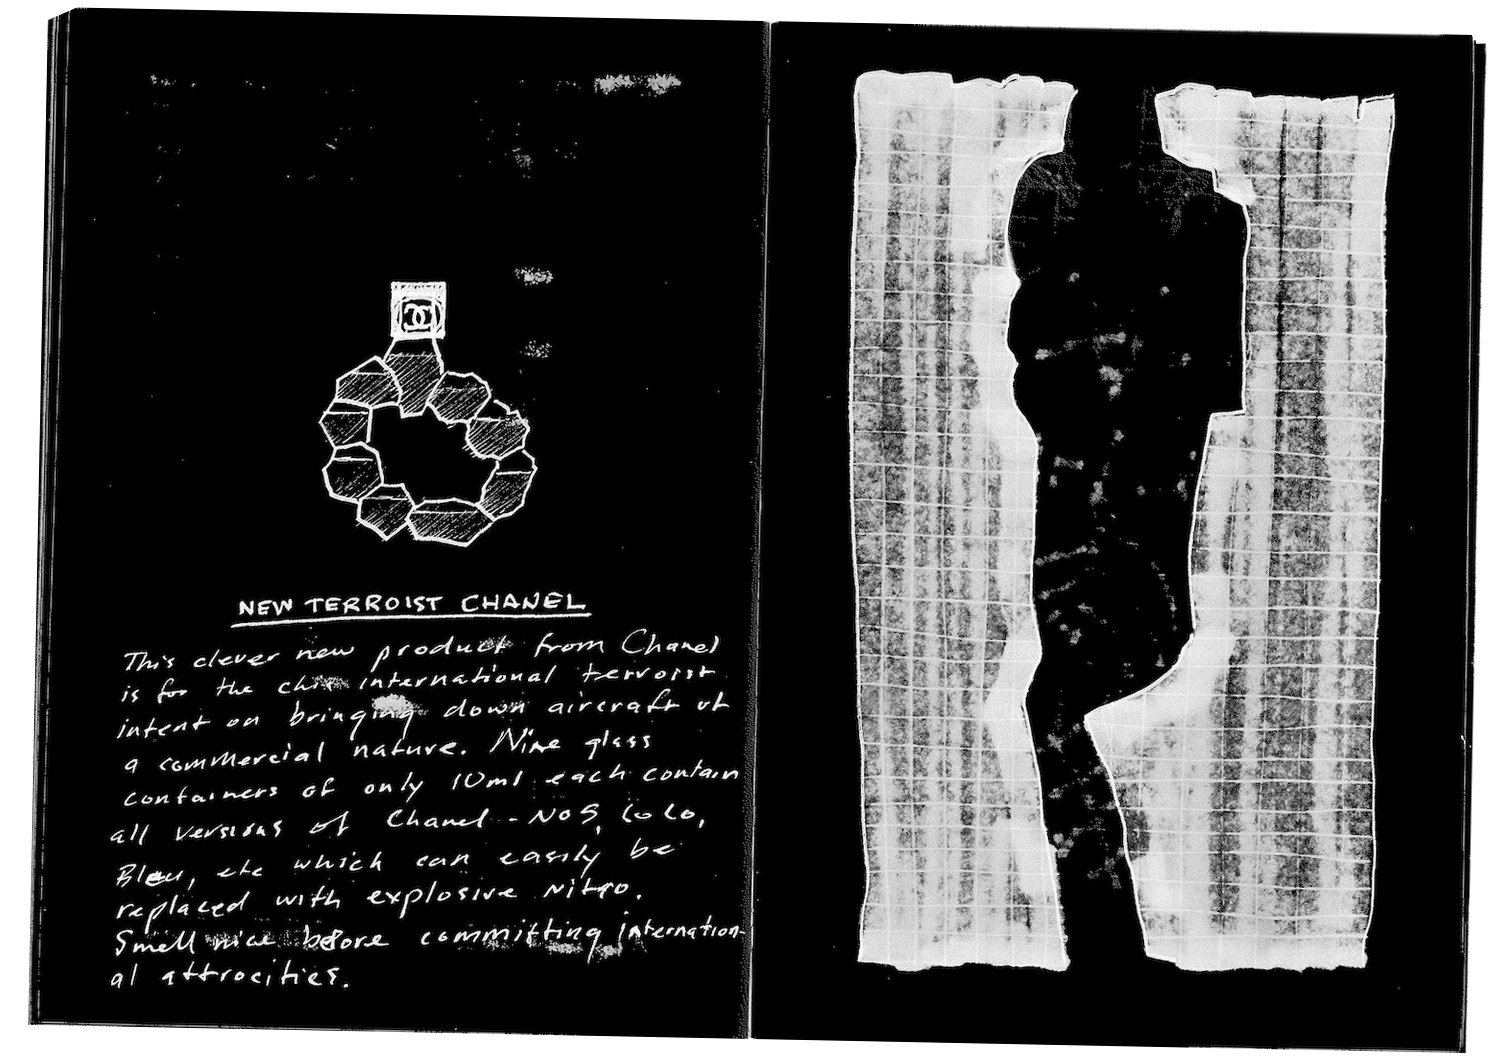 NEW TERROIST CHANEL
This clever new product from Chanel
is for the chic international terroist
intent on bringing down aircraft of
a commercial nature. Nine glass
containers of only 10ml each contain
all versions of Chanel - No5, CoCo,
Bleu, etc which can easily be
replaced with explosive nitro.
Smell nice before committing internation-
al attrocities.